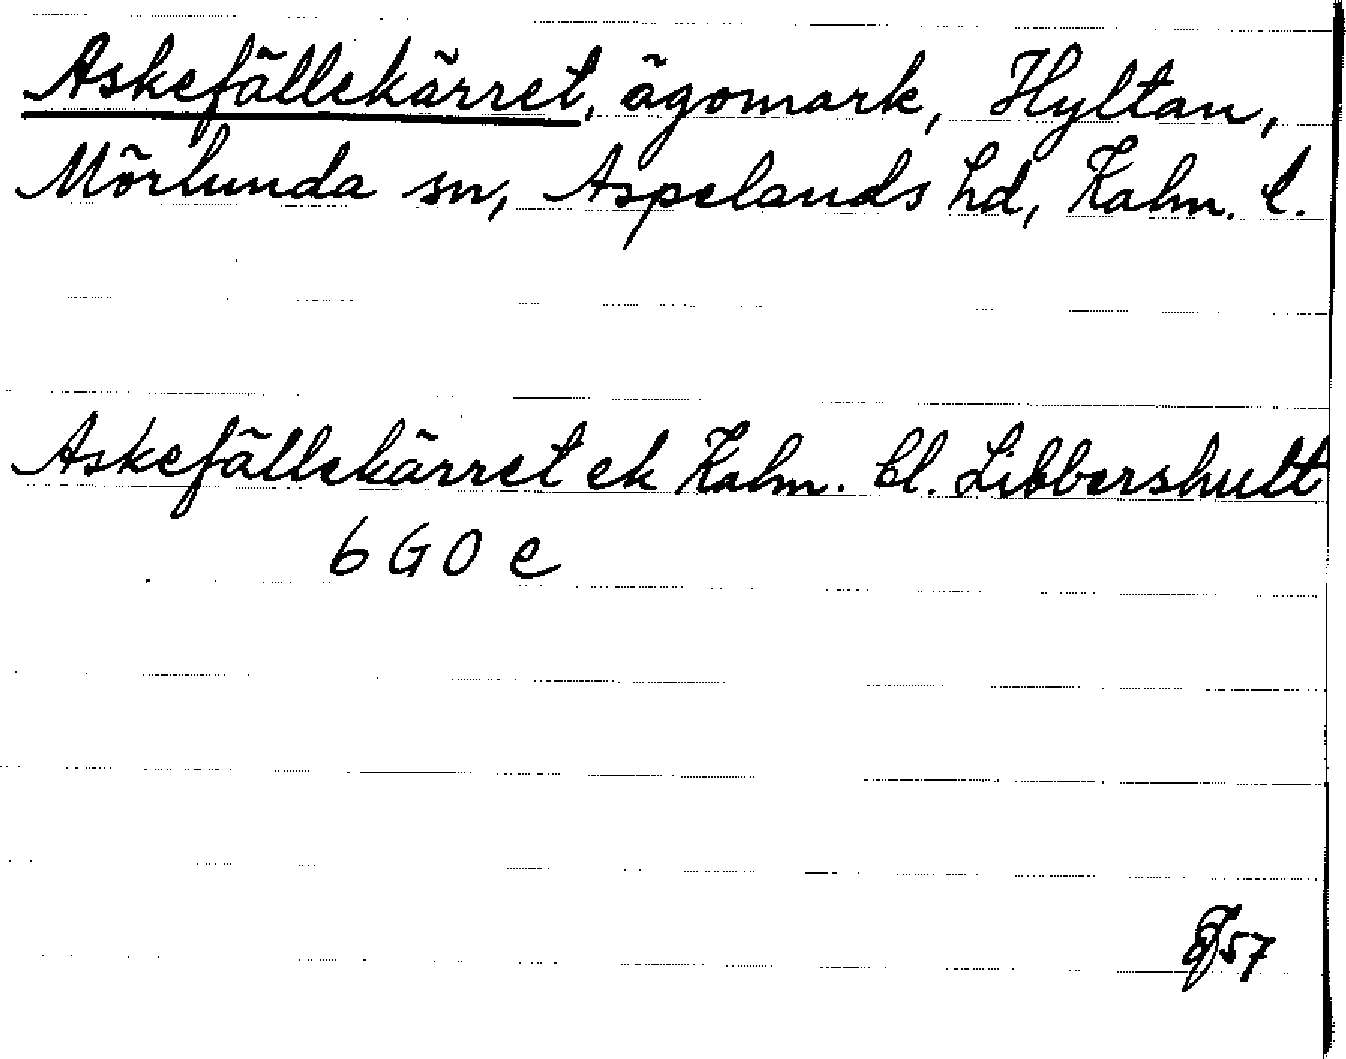 Askefällekärret, ägomark, Hyltan,
Mörlunda sn, Aspelands hd, Kalm. l.
Askefällekärret ek Kalm. bl. Libbershult
6 G O e
57